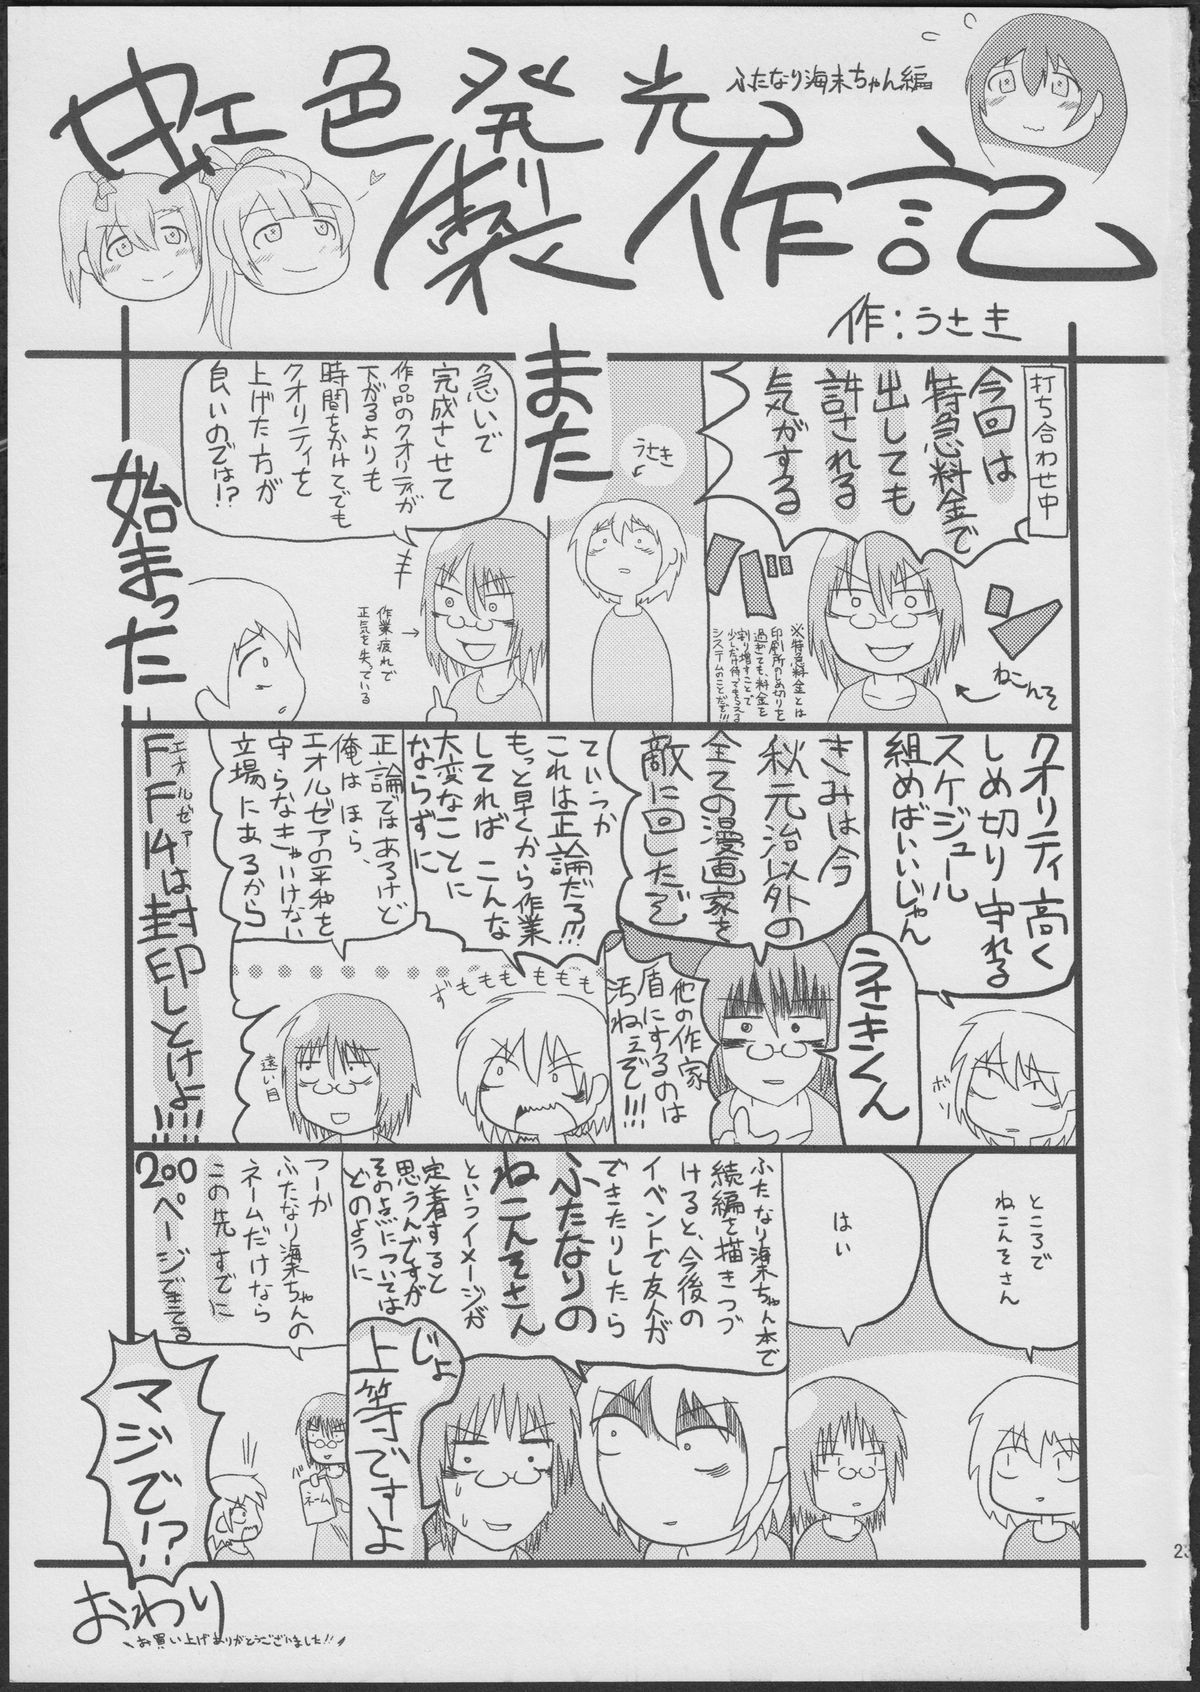 虹色発光
製作記
ふたなり海未ちゃん編
作：うさき
打ち合わせ中
今回は
特急料金で
出しても
許される
気がする
バ
ン
ねこんそ
※特急料金とは
印刷所のしめ切りを
過ぎても、料金を
割り増すことで
少しだけ待ってもらえる
システムのことだぞ!!!
うさき
また
始まった
急いで
完成させて
作品のクオリティが
下がるよりも
時間をかけてでも
クオリティを
上げた方が
良いのでは!?
作業疲れで
正気を失っている
クオリティ高く
しめ切り守れる
スケジュール
組めばいいじゃん
ボソ
うさきくん
きみは今
秋元治以外の
全ての漫画家を
敵に回したぞ
他の作家
盾にするのは
汚ねぇぞ!!!
ていうか
これは正論だろ!!!
もっと早くから作業
してれば こんな
大変なことに
ならずに
ずももももももも
正論ではあるけど
俺はほら、
エオルゼアの平和を
守らなきゃいけない
立場にあるから
遠い目
エオルゼア
FF14は封印しとけよ!!!!
ところで
ねこんそさん
はい
ふたなり海未ちゃん本で
続編を描きつづ
けると、今後の
イベントで友人が
できたりしたら
ふたなりの
ねこんそさん
というイメージが
定着すると
思うんですが
そのへんについては
どのように
じょ
上等ですよ
つーか
ふたなり海未ちゃんの
ネームだけなら
この先すでに
200ページできてる
バッ
ネーム
マジで!?
おわり
お買い上げありがとうございました!!
23